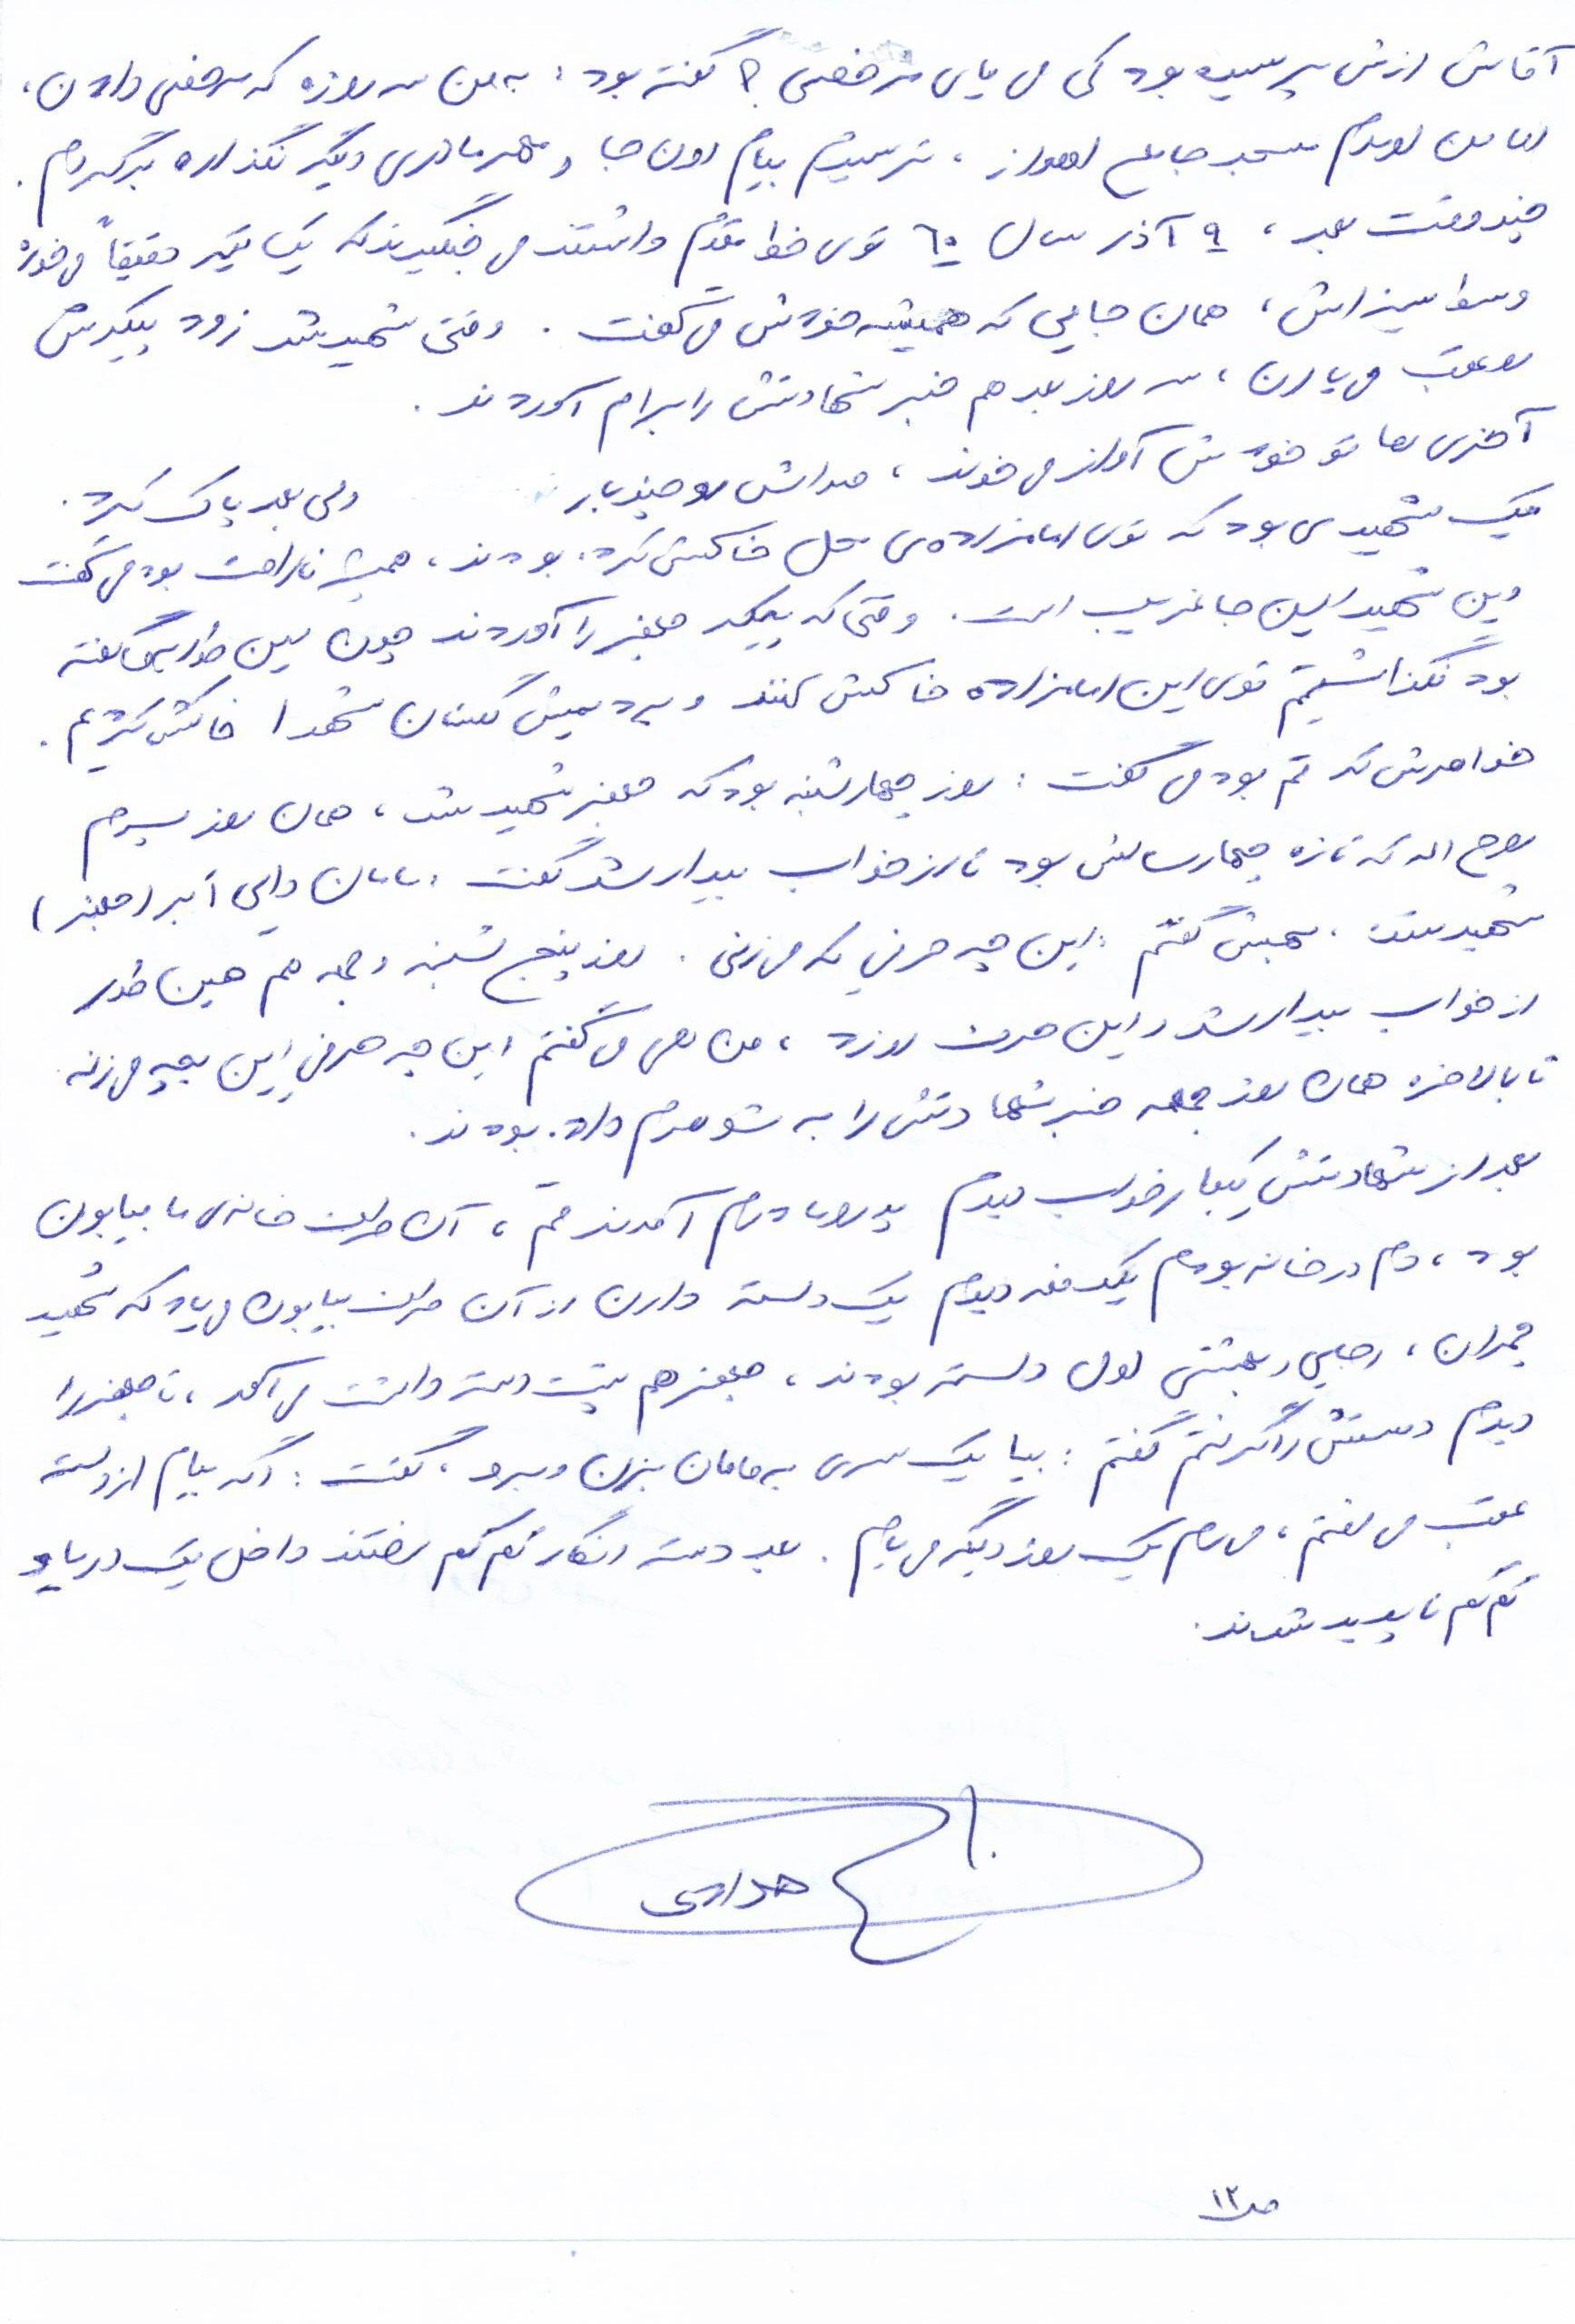 آقاش ازش پرسیده بود کی می‌یای مرخصی؟ گفته بود: به من سه روزه که مرخصی دادن،
اما من اومدم مسجد جامع اهواز، ترسیدم بیام اون جا و مهر مادری دیگر نگذاره برگردم.
چند وقت بعد، ۹ آذر سال ۶۰ توی خط مقدم داشتند می‌جنگیدند که یک تیر دقیقاً می‌خوره
وسط سینه‌اش، همان جایی که همیشه خودش می‌گفت. وقتی شهید شد زود پیکرش
رو عقب می‌یارن، سه روز بعد هم خبر شهادتش را برام آوردند.
آخری‌ها تو خودش آواز می‌خوند، صداش رو چند بار ولی بعد پاک کرد.
یک شهیدی بود که توی امامزاده‌ی محل خاکش کرده بودند، همیشه ناراحت بود می‌گفت
این شهید این جا غریب است. وقتی که پیکر جعفر را آوردند چون این طور گفته
بود نگذاشتیم توی این امامزاده خاکش کنند و بردیمش گلستان شهدا خاکش کردیم.
خواهرش که قم بود می‌گفت: روز چهارشنبه بود که جعفر شهید شد، همان روز پسرم
روح اله که تازه چهارسالش بود تا از خواب بیدار شد گفت: مامان دایی اکبر (جعفر)
شهید شد، بهش گفتم: این چه حرفیه که می‌زنی. روز پنج شنبه و جمعه هم همین طور
از خواب بیدار شد و این حرف رو زد، من هی می‌گفتم این چه حرفیه این بچه می‌زنه
تا بالاخره همان روز جمعه خبر شهادتش را به شوهرم داده بودند.
بعد از شهادتش یکبار خواب دیدم پدر و مادرم آمدند قم، آن طرف خانه‌ی ما بیابون
بود، دم در خانه بودم یکدفعه دیدم یک دسته دارن از آن طرف بیابون می‌یاد که شهید
چمران، رجایی و بهشتی اول دسته بودند، جعفر هم پشت دسته داشت می‌آمد، تا جعفر را
دیدم دستش را گرفتم گفتم: بیا یک سری به مامان بزن و برو، گفت: اگه بیام از دسته
عقب می‌افتم، می‌رم یک روز دیگه می‌یام. بعد دسته انگار کم کم رفتند داخل یک دریا و
کم کم ناپدید شدند.
هدادی
ص ۱۲